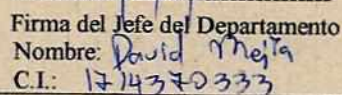 Firma del Jefe del Departamento
Nombre: David Mejía
C.I.: 1714370333